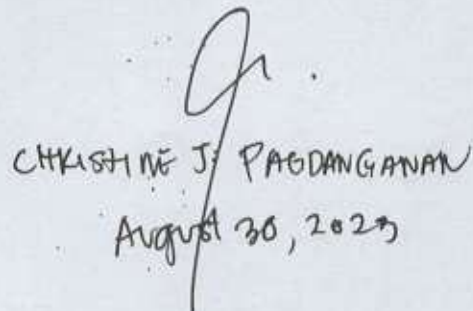 CHRISTINE J. PAGDANGANAN
August 30, 2023